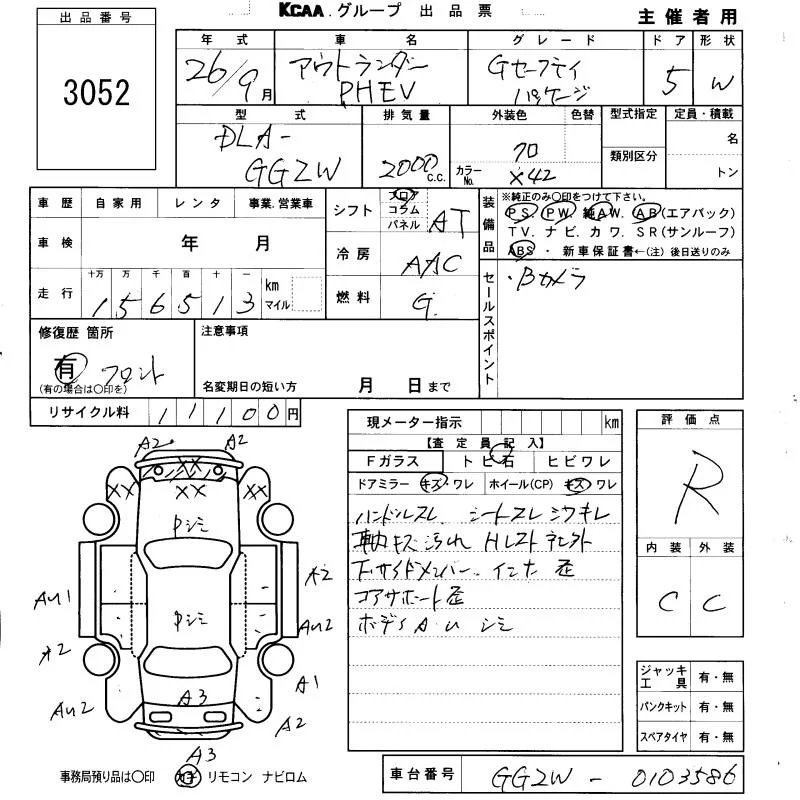 KCAA.グループ 出品票
主催者用
出品番号
3052
年式 車名 グレード ドア 形状
26/9月 アウトランダー PHEV Gセーフティ パッケージ 5 W
型式 排気量 外装色 色替 型式指定 定員・積載
DLA-
GG2W 2000 c.c. カラーNo. X42 類別区分 名
トン
車歴 自家用 レンタ 事業.営業車
車検 年 月
走行 十万 万 千 百 十 一
156513 km マイル
シフト フロア コラム パネル AT
冷房 AAC
燃料 G
装備品 ※純正のみ○印をつけて下さい。
PS. PW. 純AW. AB(エアバック)
TV. ナビ. カワ. SR(サンルーフ)
ABS・新車保証書←(注)後日送りのみ
セールスポイント
・Bカメラ
修復歴 箇所
有 フロント
(有の場合は○印を)
注意事項
名変期日の短い方 月 日まで
リサイクル料 11100円
現メーター指示 km
【査定員記入】
Fガラス トビ石 ヒビワレ
ドアミラー キズ・ワレ ホイール(CP) キズ・ワレ
ハンドルスレ シートスレ シワキレ
車内キズ汚れ Hレスト
下サイドメンバー. インナ 歪
コアサポート歪
ボディA.U シミ
評価点
R
内装 外装
C C
ジャッキ工具 有・無
パンクキット 有・無
スペアタイヤ 有・無
A2 A2
XX XX XX XX
Pシミ
Pシミ
AU1
AU2
AU2
A1
A2
A3
A3
事務局預り品は○印 リモコン ナビロム
車台番号 GG2W - 0103586